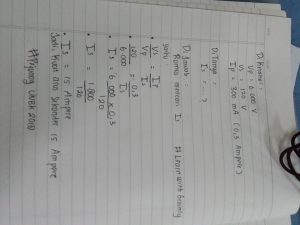 Diketahui :
Vp = 6.000 V
Vs = 120 V
Ip = 300 mA (0,3 Ampere)
Di Tanya :
Is = - ?
Di Jawab :
Rumus mencari Is # Learn with Brainly
yaitu :
• Vs / Vp = Ip / Is
120 / 6.000 = 0,3 / Is
• Is = 6.000 x 0,3 / 120
• Is = 1.800 / 120
• Is = 15 Ampere
Jadi, Kuat arus Sekunder 15 Ampere
# Pejuang UNBK 2018